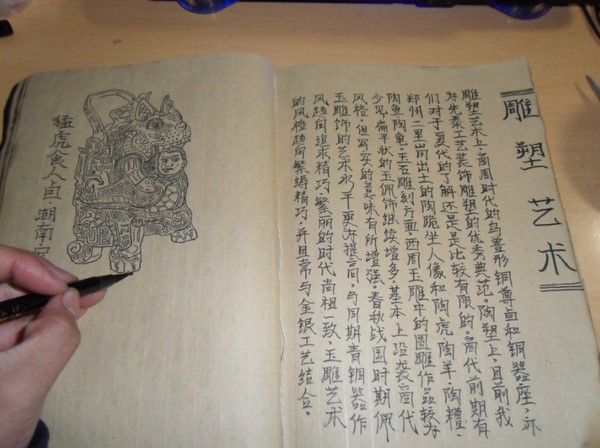 雕塑艺术
雕塑艺术上，商周时代的鸟兽形铜尊、卣和铜器座，亦
先秦工艺装饰雕塑的优秀典范。陶塑上，目前我
们对于夏代的了解还是是比较有限的，商代前期有
郑州二里岗出土的陶跪坐人像和陶虎、陶羊、陶
陶鱼、陶龟。玉石雕刻方面，西周玉雕中的圆雕作品较为
少见，偏平状的玉佩饰继续增多，基本上沿袭商代
风格，但写实的意味有所增强。春秋战国时期佩
玉雕饰的艺术水平更为提高，与同期青铜器作
风趋同追求精巧、繁丽的时代尚相一致，玉雕艺术
的风格趋同繁缛精巧，并且常与金银工艺结合。
猛虎食人卣·湖南宁